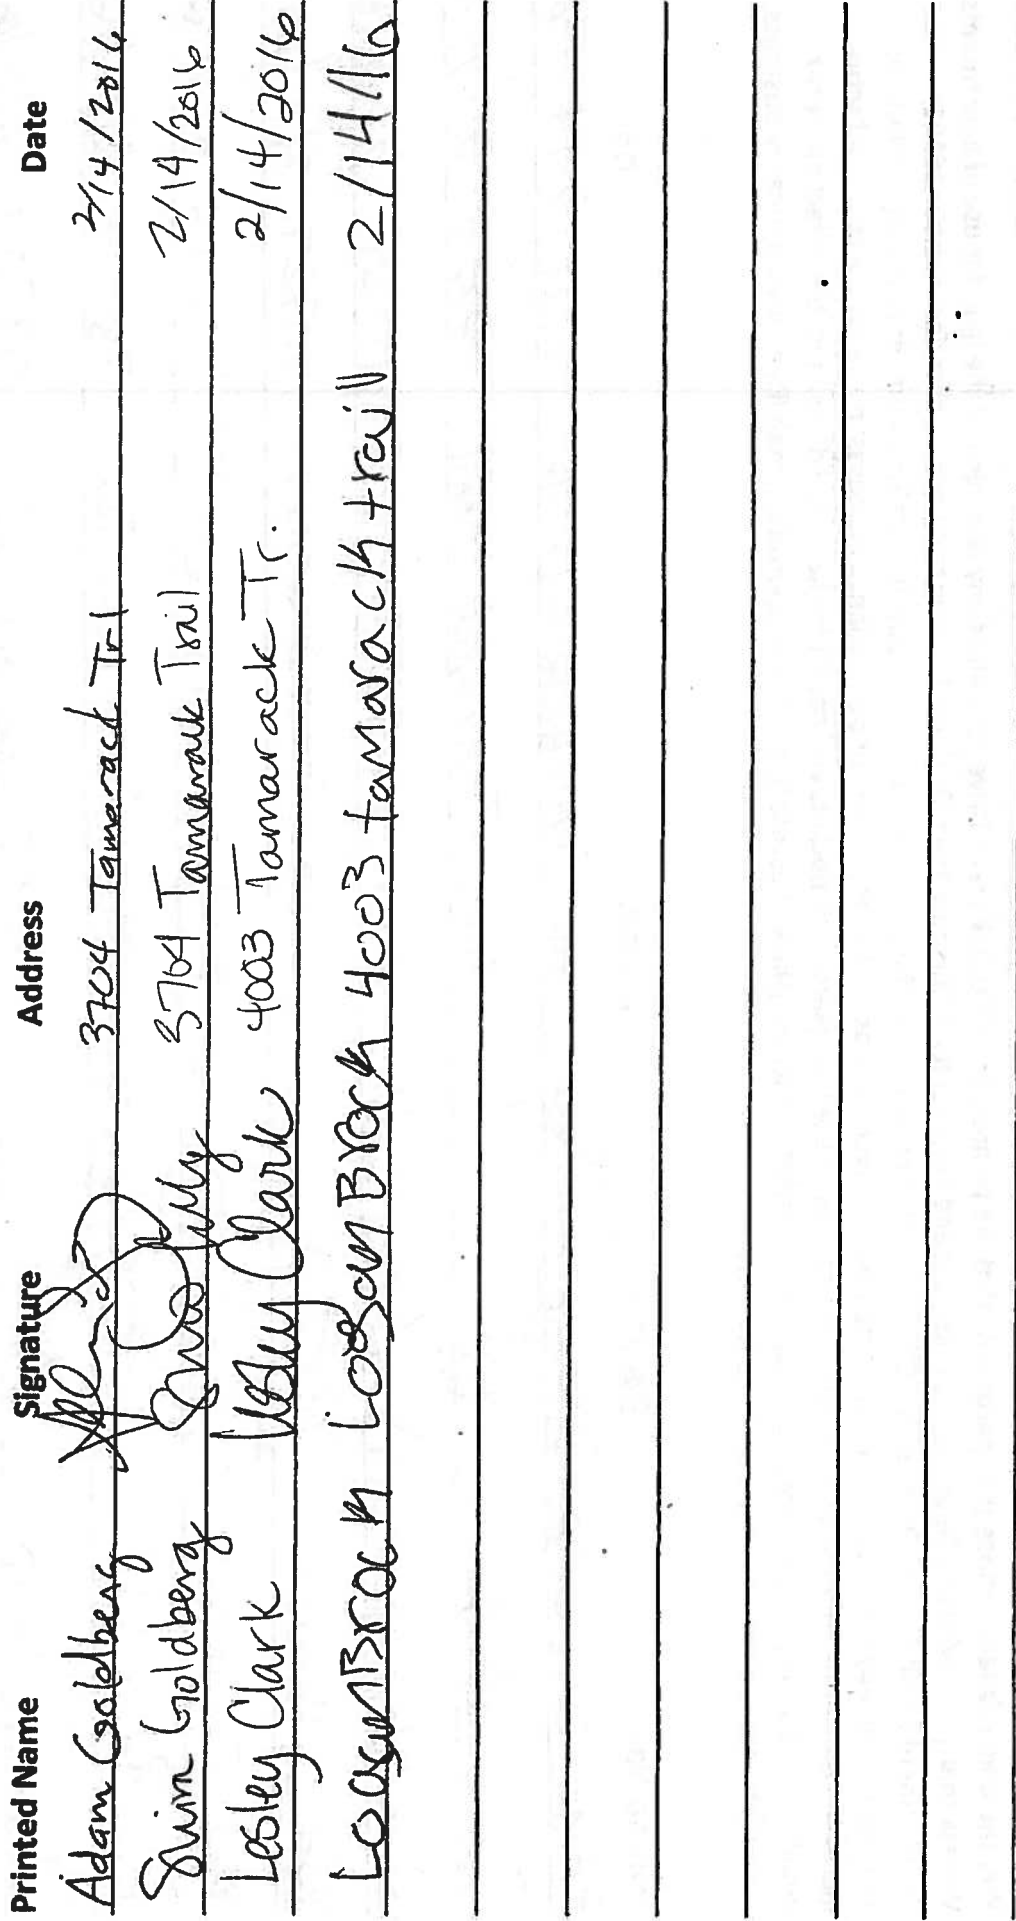 Printed Name Signature Address Date
Adam Goldberg 3704 Tamarack Trl 2/14/2016
Goldberg 3704 Tamarack Trail 2/14/2016
Lesley Clark Lesley Clark 4003 Tamarack Tr. 2/14/2016
Logan Brock Logan Brock 4003 tamarack trail 2/14/16